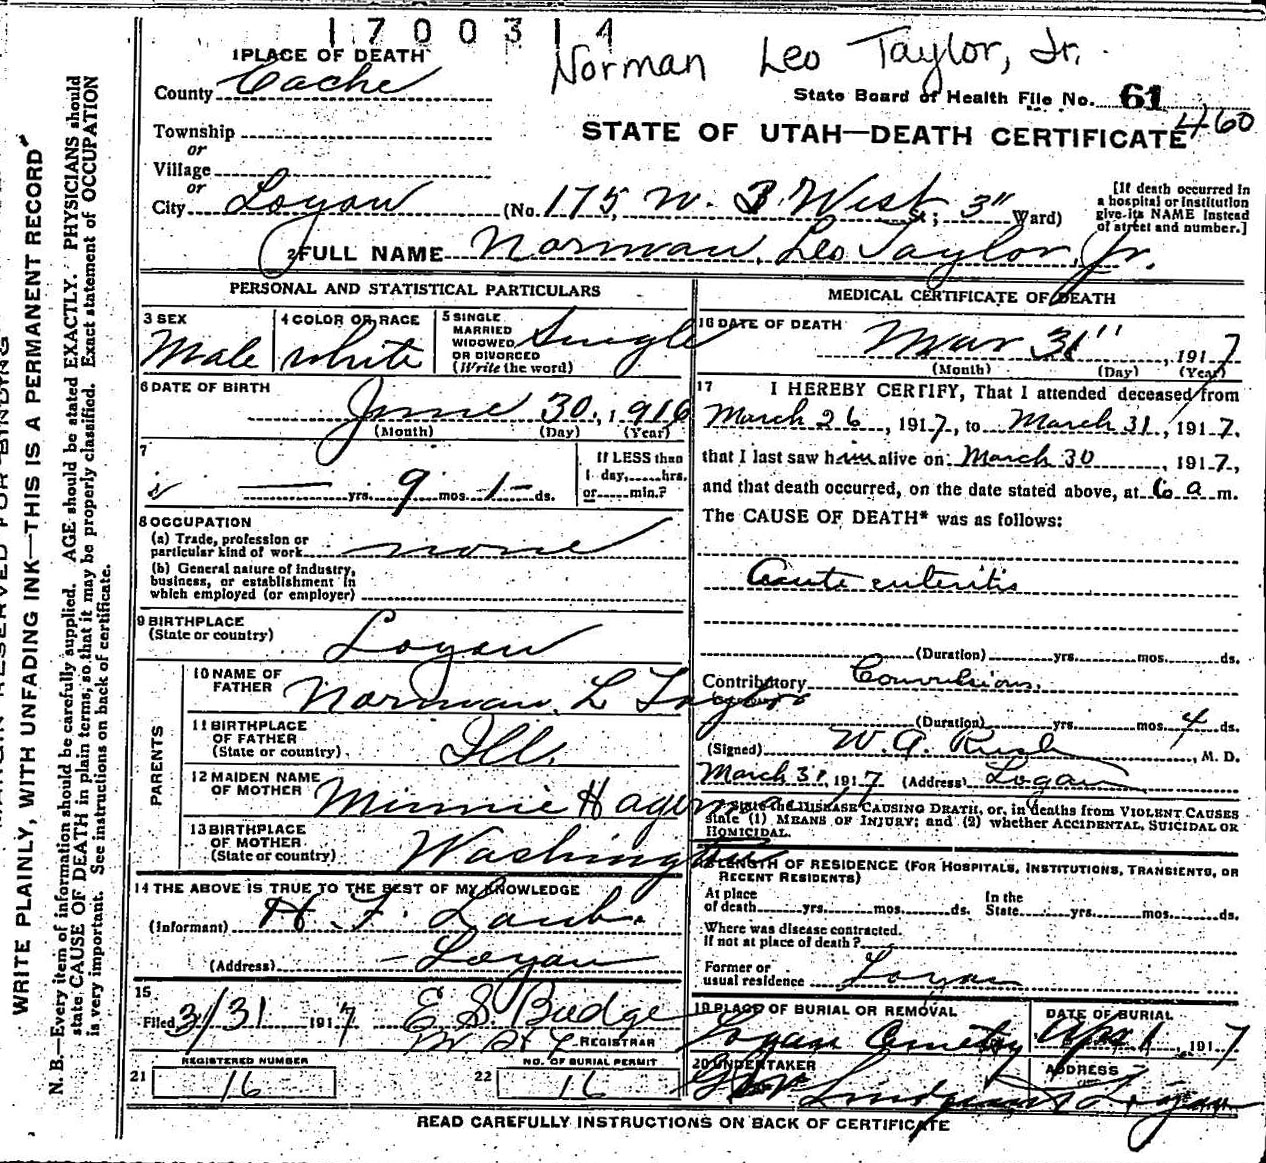 1700314
Norman Leo Taylor, Jr.
1 PLACE OF DEATH
County Cache
State Board of Health File No. 61
460
Township
or
STATE OF UTAH—DEATH CERTIFICATE
Village
or
City Logan (No. 175, W. 3. West St; 3" Ward)
[If death occurred in
a hospital or institution
give its NAME instead
of street and number.]
2 FULL NAME Norman Leo Taylor, Jr.
PERSONAL AND STATISTICAL PARTICULARS
3 SEX
Male
4 COLOR OR RACE
White
5 SINGLE
MARRIED
WIDOWED
OR DIVORCED
(Write the word)
Single
6 DATE OF BIRTH
June 30, 1916
(Month) (Day) (Year)
7
— yrs. 9 mos. 1 – ds.
If LESS than
1 day, hrs.
or min.?
8 OCCUPATION
(a) Trade, profession or
particular kind of work none
(b) General nature of industry,
business, or establishment in
which employed (or employer)
9 BIRTHPLACE
(State or country) Logan
PARENTS
10 NAME OF
FATHER Norman L Taylor
11 BIRTHPLACE
OF FATHER
(State or country) Ill.
12 MAIDEN NAME
OF MOTHER Minnie Hagerman
13 BIRTHPLACE
OF MOTHER
(State or country) Washington
14 THE ABOVE IS TRUE TO THE BEST OF MY KNOWLEDGE
(Informant) H. F. Laub.
(Address) Logan
15
Filed 3/31 1917 E S. Budge
REGISTRAR
REGISTERED NUMBER
21 16
NO. OF BURIAL PERMIT
22 16
MEDICAL CERTIFICATE OF DEATH
16 DATE OF DEATH
Mar 31" , 1917
(Month) (Day) (Year)
17 I HEREBY CERTIFY, That I attended deceased from
March 26, 1917, to March 31, 1917,
that I last saw him alive on March 30, 1917,
and that death occurred, on the date stated above, at 6 a m.
The CAUSE OF DEATH* was as follows:
Acute enteritis
(Duration) yrs. mos. ds.
Contributory Convulsions.
(Duration) yrs. mos. 4 ds.
(Signed) W. A. Rush, M. D.
March 31, 1917 (Address) Logan
*State the DISEASE CAUSING DEATH, or, in deaths from VIOLENT CAUSES
state (1) MEANS OF INJURY; and (2) whether ACCIDENTAL, SUICIDAL OR
HOMICIDAL.
18 LENGTH OF RESIDENCE (FOR HOSPITALS, INSTITUTIONS, TRANSIENTS, OR
RECENT RESIDENTS)
At place
of death yrs. mos. ds.
In the
State yrs. mos. ds.
Where was disease contracted.
If not at place of death?
Former or
usual residence Logan
19 PLACE OF BURIAL OR REMOVAL
Logan Cemetry
DATE OF BURIAL
Apr 1, 1917
20 UNDERTAKER
Lindquist
ADDRESS
Logan
READ CAREFULLY INSTRUCTIONS ON BACK OF CERTIFICATE
WRITE PLAINLY, WITH UNFADING INK—THIS IS A PERMANENT RECORD
N. B.—Every item of information should be carefully supplied. AGE should be stated EXACTLY. PHYSICIANS should
state CAUSE OF DEATH in plain terms, so that it may be properly classified. Exact statement of OCCUPATION
is very important. See instructions on back of certificate.